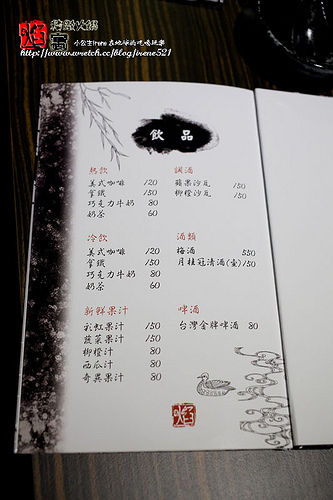 小公主Irene在地球的吃喝玩樂
http://www.wretch.cc/blog/irene521
飲品
熱飲
美式咖啡 120
拿鐵 150
巧克力牛奶 80
奶茶 60
調酒
蘋果沙瓦 150
柳橙沙瓦 150
冷飲
美式咖啡 120
拿鐵 150
巧克力牛奶 80
奶茶 60
酒類
梅酒 550
月桂冠清酒(壺) 150
新鮮果汁
彩虹果汁 150
蔬菜果汁 150
柳橙汁 80
西瓜汁 80
奇異果汁 80
啤酒
台灣金牌啤酒 80